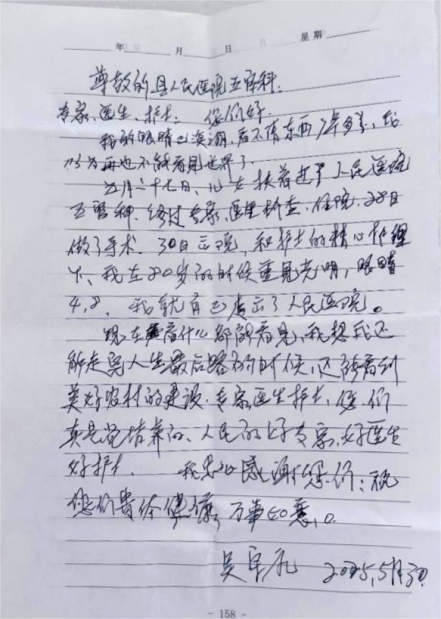 年 月 日 星期
尊敬的县人民医院五官科:
专家、医生、护士: 您们好.
我的眼睛已模糊,看不清东西7年多了,我
以为再也不能看见世界了.
五月二十七日,儿女扶着进了人民医院
五官科.经过专家、医生检查.住院.28日
做了手术.30日出院,和护士的精心护理
下,我在80岁的时候重见光明,眼睛
4.8,我就自己走出了人民医院。
现在看什么都能看见,我想我还
能走完人生最后路的时候,还能看到
美好农村的建设.专家医生护士,您们
真是党培养的、人民的好专家、好医生
好护士. 我衷心感谢您们:祝
您们贵体健康,万事如意.
吴 2025,5月30
- 158 -